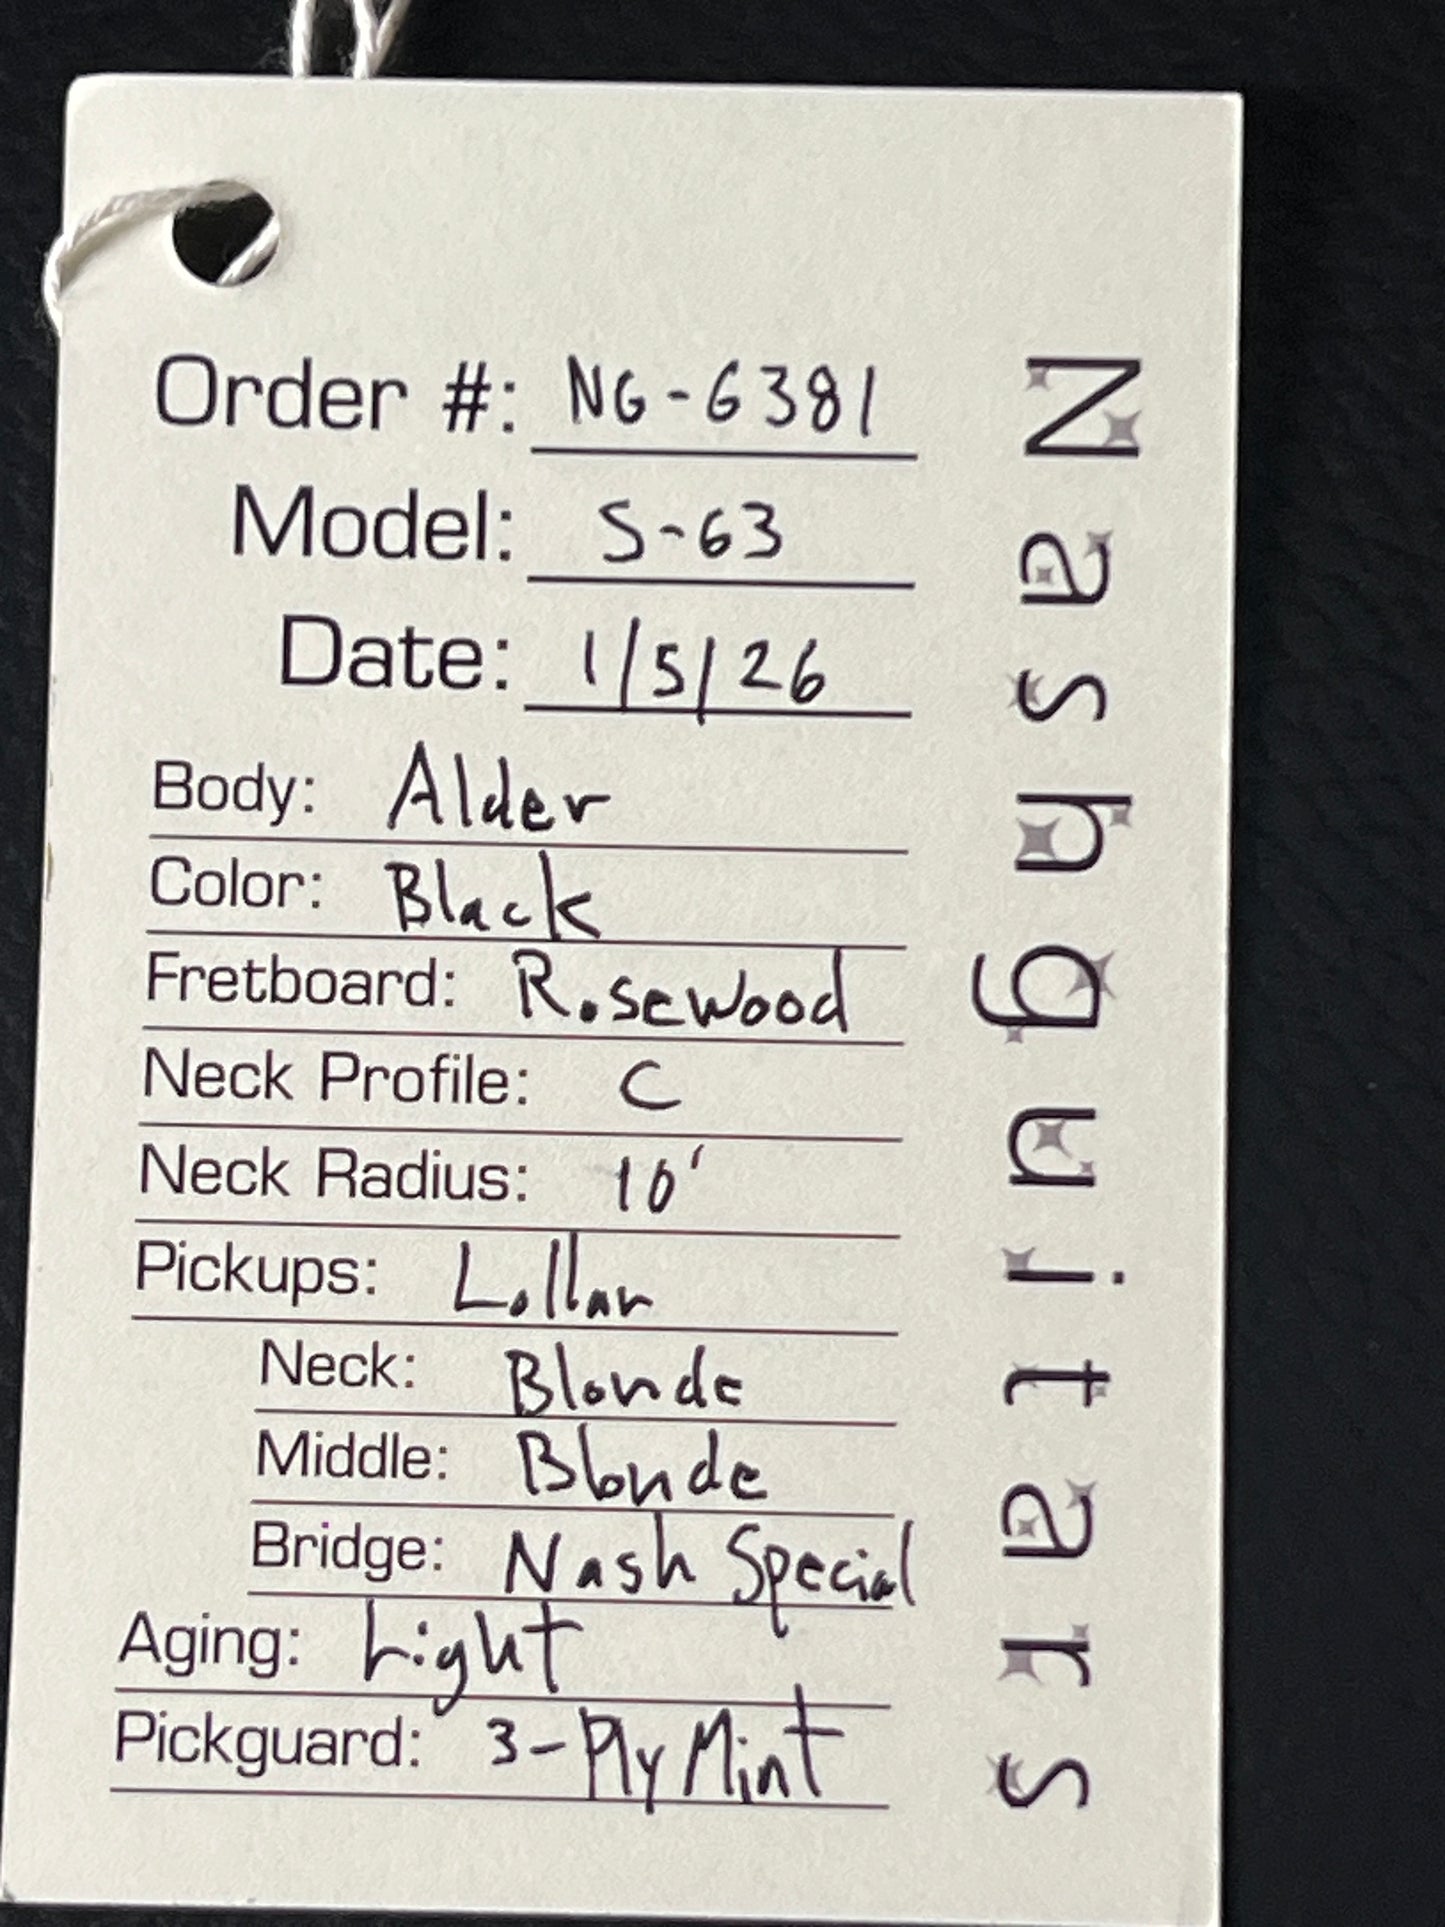 Order #: NG-6381
Model: S-63
Date: 1/5/26
Body: Alder
Color: Black
Fretboard: Rosewood
Neck Profile: C
Neck Radius: 10'
Pickups: Lollar
Neck: Blonde
Middle: Blonde
Bridge: Nash Special
Aging: Light
Pickguard: 3-Ply Mint
Nashguitars